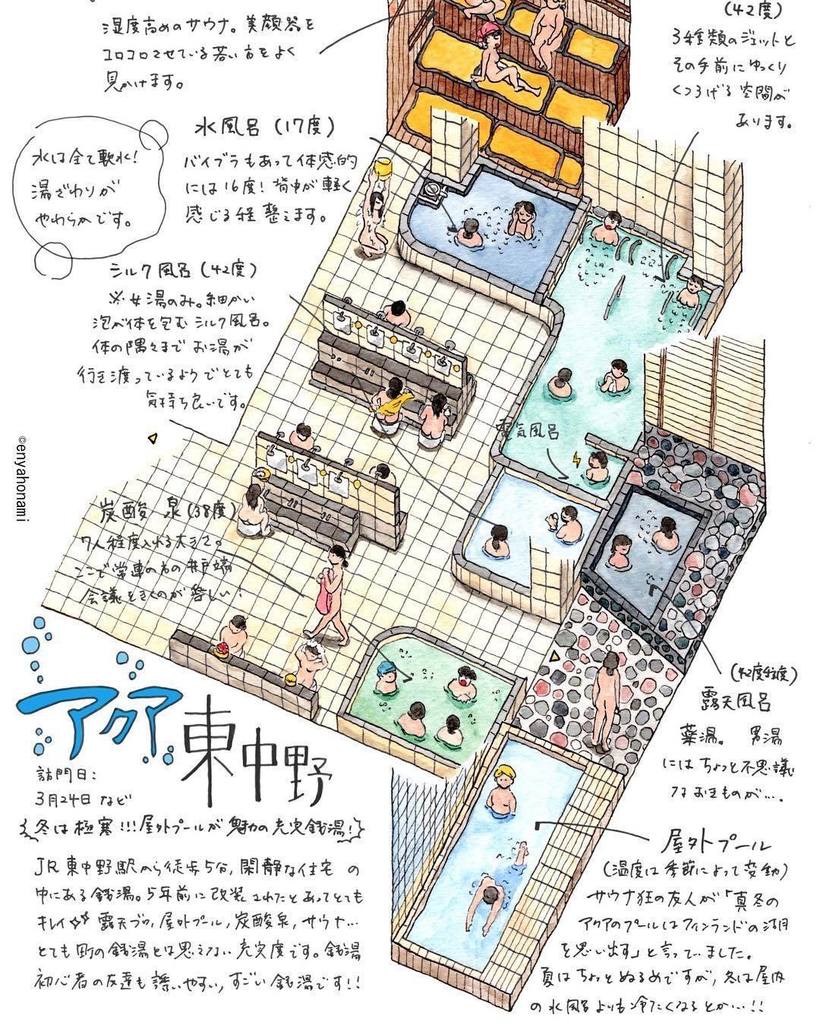 湿度高めのサウナ。美顔器を
コロコロさせている若い方をよく
見かけます。
(42度)
3種類のジェットと
その手前にゆっくり
くつろげる空間が
あります。
水風呂(17度)
バイブラもあって体感的
には16度!背中が軽く
感じる程整えます。
水は全て軟水!
湯ざわりが
やわらかです。
シルク風呂(42度)
※女湯のみ。細かい
泡が体を包むシルク風呂。
体の隅々までお湯が
行き渡っているようでとても
気持ち良いです。
電気風呂
©enyahonami
炭酸泉(38度)
7人程度入れる大きさ。
ここで常連さんの井戸端
会議をきくのが楽しい!
(42度程度)
露天風呂
薬湯。男湯
にはちょっと不思議
なおきものが…。
アクア東中野
訪問日:
3月24日など
冬は極寒!!!屋外プールが魅力の充実銭湯!
JR東中野駅から徒歩5分,閑静な住宅の
中にある銭湯。5年前に改装されたとあってとても
キレイ 露天ブロ,屋外プール,炭酸泉,サウナ…
とても町の銭湯とは思えない充実度です。銭湯
初心者の友達も誘いやすい,すごい銭湯です!!
屋外プール
(温度は季節によって変動)
サウナ狂の友人が「真冬の
アクアのプールはフィンランドの湖
を思い出す」と言っていました。
夏はちょっとぬるめですが,冬は屋内
の水風呂よりも冷たくなるとか…!!